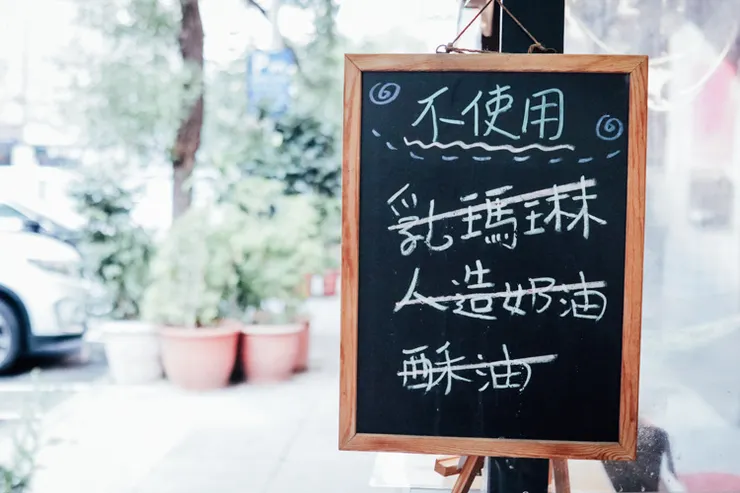 不使用
乳瑪琳
人造奶油
酥油